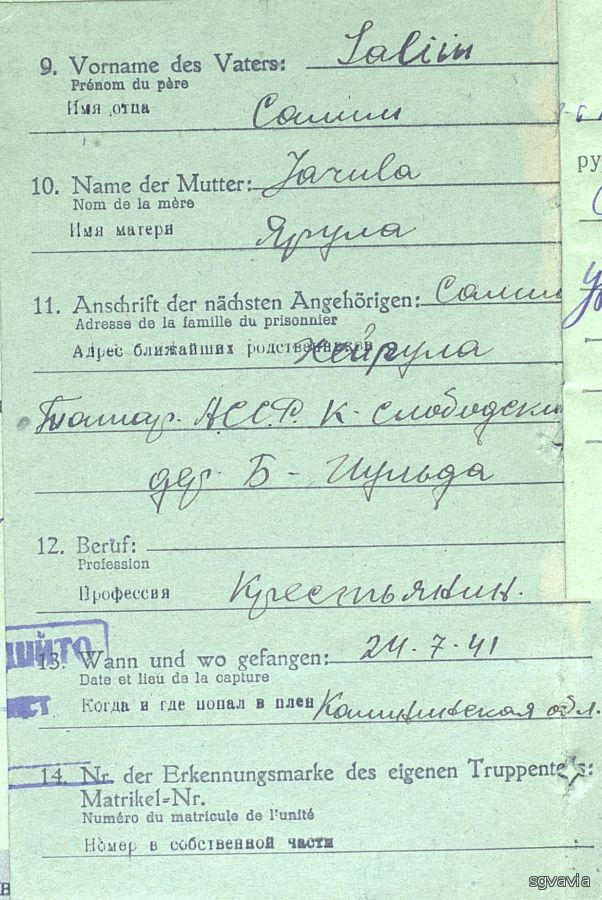 9. Vorname des Vaters: Salim
Prénom du père
Имя отца Салим
10. Name der Mutter: Jarula
Nom de la mère
Имя матери Ярула
11. Anschrift der nächsten Angehörigen: Салим
Adresse de la famille du prisonnier
Адрес ближайших родственников Хейрула
Татар. АССР. К-слободски
дер. Б-Шульда
12. Beruf:
Profession
Профессия Крестьянин.
13. Wann und wo gefangen: 24.7.41
Date et lieu de la capture
Когда и где попал в плен Калининская обл.
14. Nr. der Erkennungsmarke des eigenen Truppenteils:
Matrikel-Nr.
Numéro du matricule de l'unité
Номер в собственной части
sgvavia